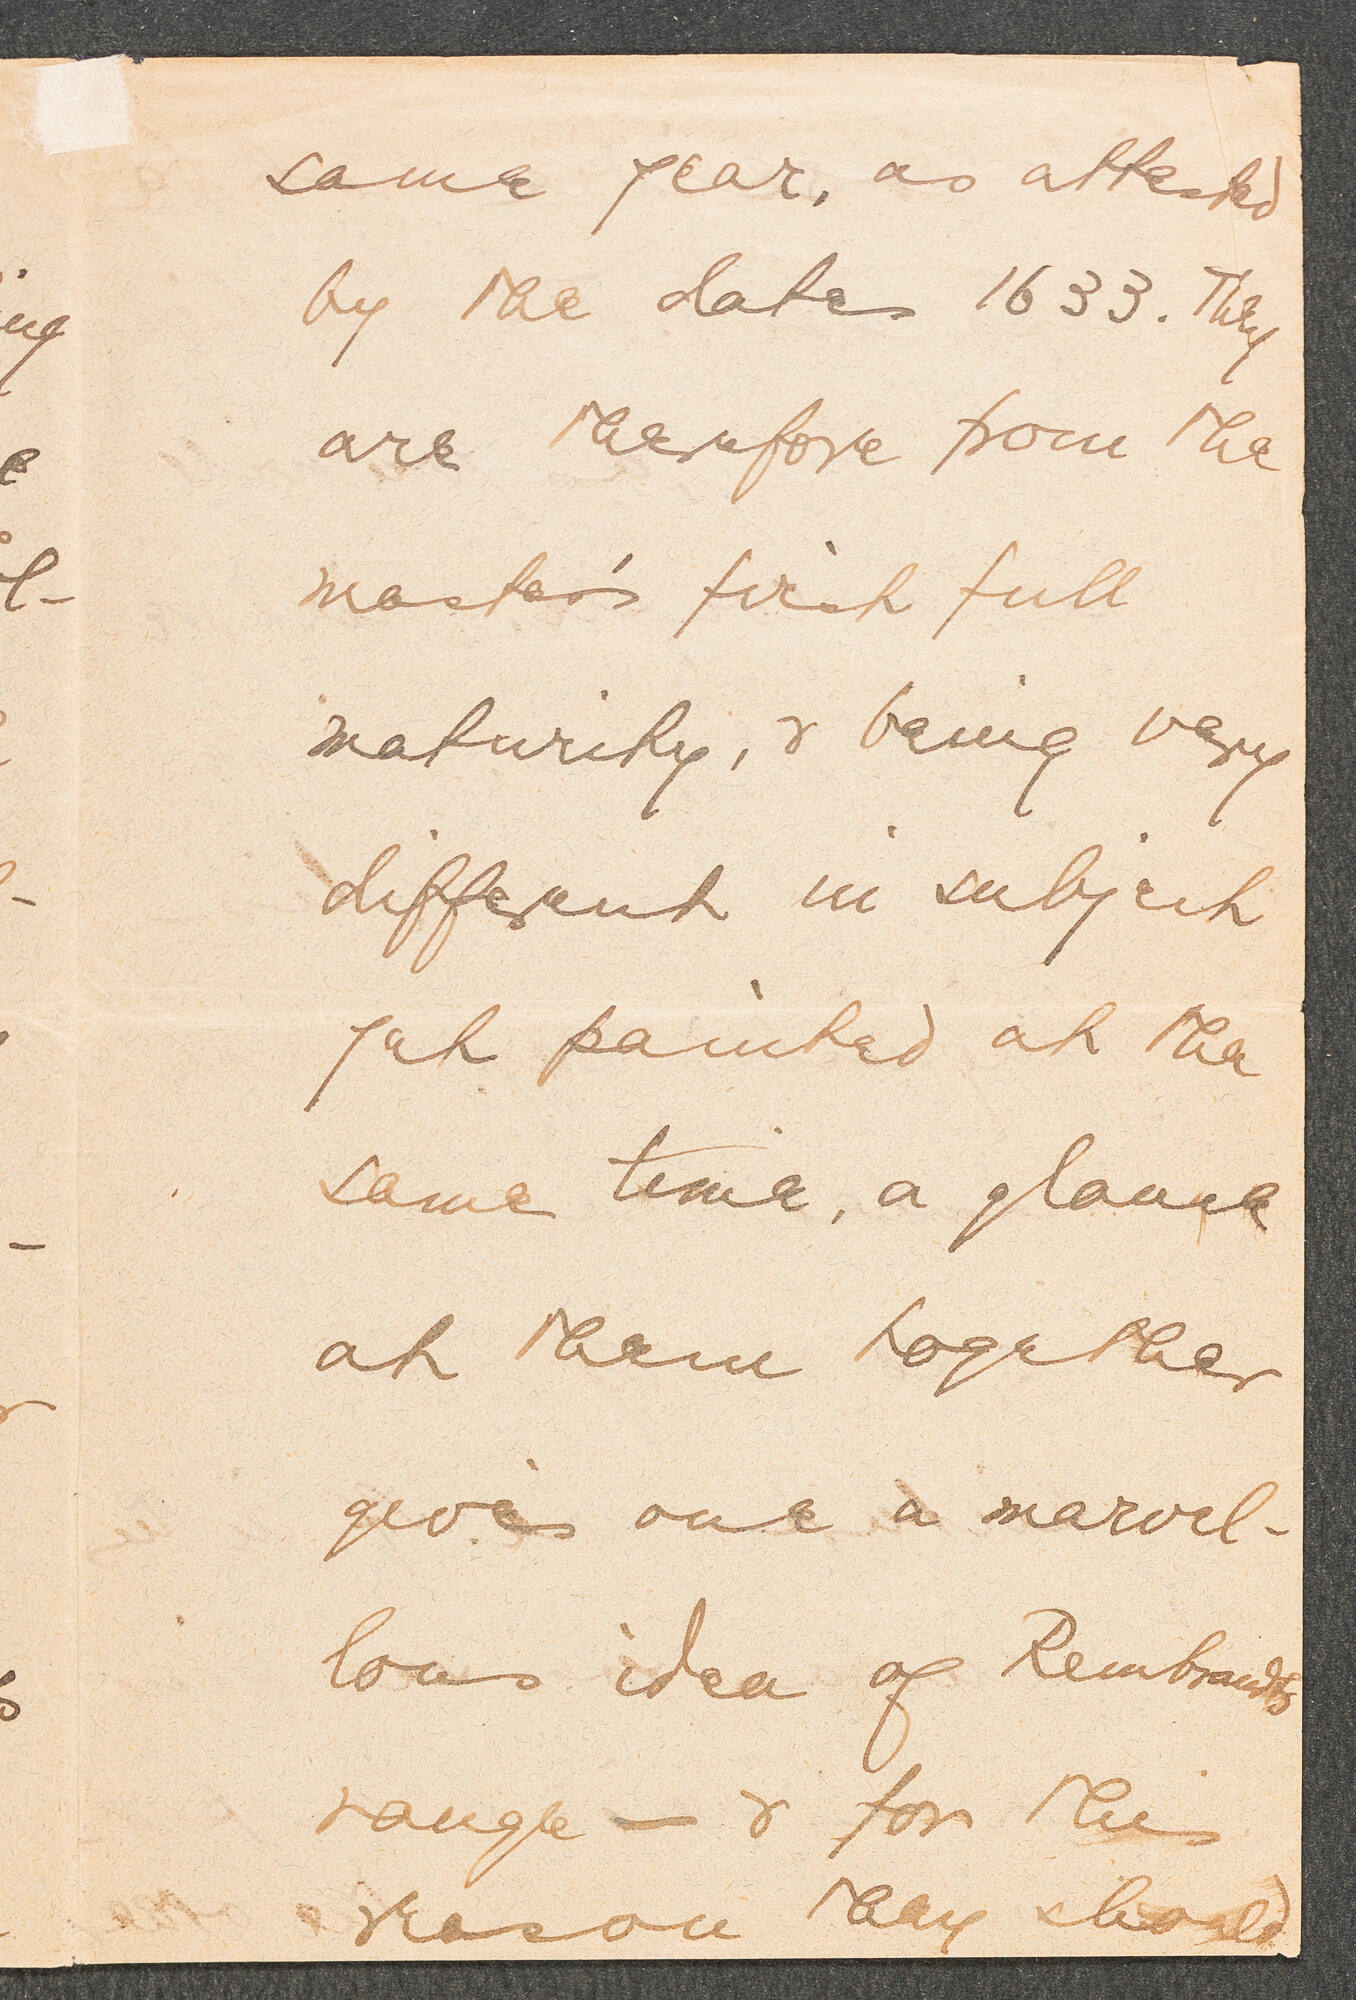 same year, as attested
by the dates 1633. They
are therefore from the
master's first full
maturity, & being very
different in subject
yet painted at the
same time, a glance
at them together
gives one a marvel-
lous idea of Rembrandt's
range — & for this
reason they should